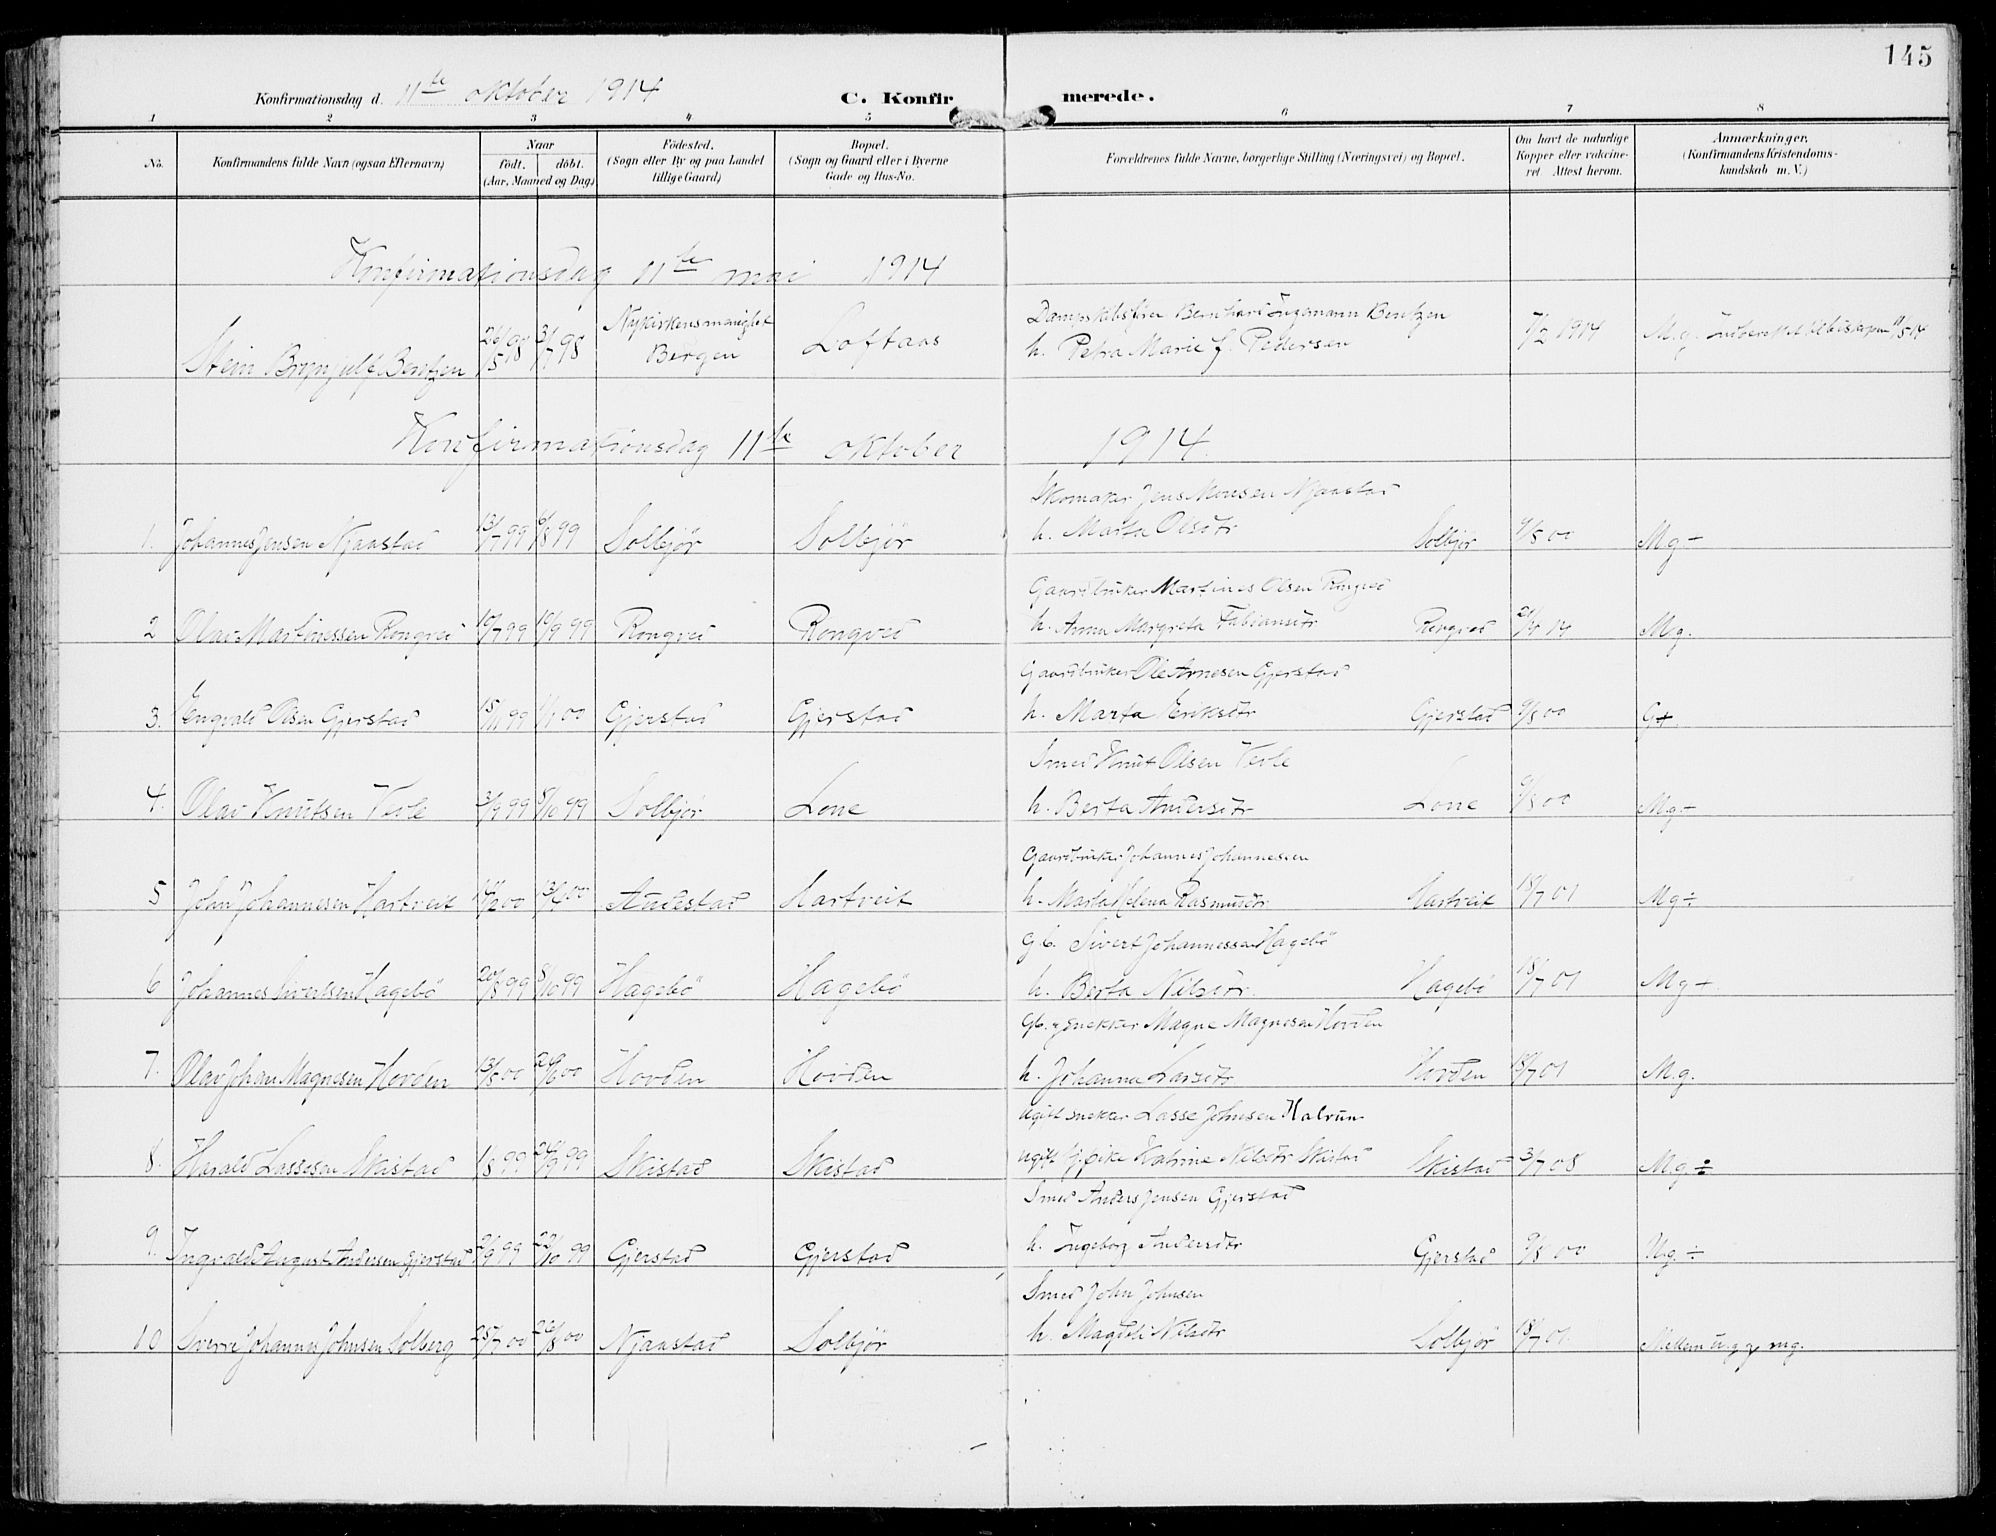 145
Konfirmationsdag d. 11te oktober 1914 C. Konfirmerede.
1 2 3 4 5 6 7 8
No. Konfirmandens fulde Navn (ogsaa Efternavn) Naar født. døbt. (Aar, Maaned og Dag) Fødested. (Sogn eller By og paa Landet tillige Gaard) Bopæl. (Sogn og Gaard eller i Byerne Gade og Hus-No. Forældrenes fulde Navne, borgerlige Stilling (Næringsvei) og Bopæl. Om havt de naturlige Kopper eller vakcineret. Attest herom. Anmærkninger. (Konfirmandens Kristendomskundskab m. V.)
Konfirmationsdag 11te mai 1914
Dampskibsfører Bernhard Ingemann Bentzen
Stein Brynjulf Bentzen 26/5 98 31/7 98 Nykirkens menighet Bergen Loftaas h. Petra Marie f. Pedersen 7/2 1914 M.g.
Konfirmationsdag 11te oktober 1914.
Skomaker Jens Monsen Njaastad
1. Johannes Jensen Njaastad 13/7 99 6/8 99 Solbjør Solbjør h. Marta Olsdtr Solbjør 9/8 00 Mg-
Gaardbruker Martines Olsen Rongved
2 Olav Martinessen Rongved 10/7 99 10/9 99 Rongved Rongved h. Anna Margreta Fabiansdtr Rongved 21/4 14 M.g.
Gaardbruker Ole Arnesen Gjerstad
3. Engvald Olsen Gjerstad 15/11 99 1/1 00 Gjerstad Gjerstad h. Marta Eriksdtr Gjerstad 9/8 00 G+
Smed Knut Olsen Vevle
4. Olav Knutsen Vevle 3/9 99 8/10 99 Solbjør Lone h. Berta Andersdtr Lone 9/8 00 Mg-
Gaardbruker Johannes Johannessen
5 John Johannesen Hartveit 14/2 00 13/4 00 Andestad Hartveit h. Marta Helena Rasmusdtr Hartveit 18/7 01 Mg÷
G.b. Sivert Johannessen Hagebö
6 Johannes Sivertsen Hagebö 20/8 99 8/10 99 Hagebö Hagebö h. Berta Nilsdtr. Hagebö 18/7 01 Mg÷
Gb. og snekker Magne Magnesen Hovden
7. Olav Johan Magnesen Hovden 13/5 00 24/6 00 Hovden Hovden h. Johanna Larsdtr Hovden 18/7 01 M.g.
ugift snekker Lasse Johnsen Halvun
8. Harald Lassesen Skistad 1/8 99 24/9 99 Skistad Skistad ugift pike Katrine Nilsdtr Skistad Skistad 3/7 08 M.g ÷
Smed Anders Jensen Gjerstad
9. Ingvald August Andersen Gjerstad 2/9 99 22/10 99 Gjerstad Gjerstad h. Ingeborg Andersdtr Gjerstad 9/8 00 M.g. ÷
Smed John Johnsen
10 Sverre Johannes Johnsen Solberg 25/7 00 26/8 00 Njaastad Solbjør h. Magdeli Nilsdtr Solbjør 18/7 01. Mellem u.g. og mg.